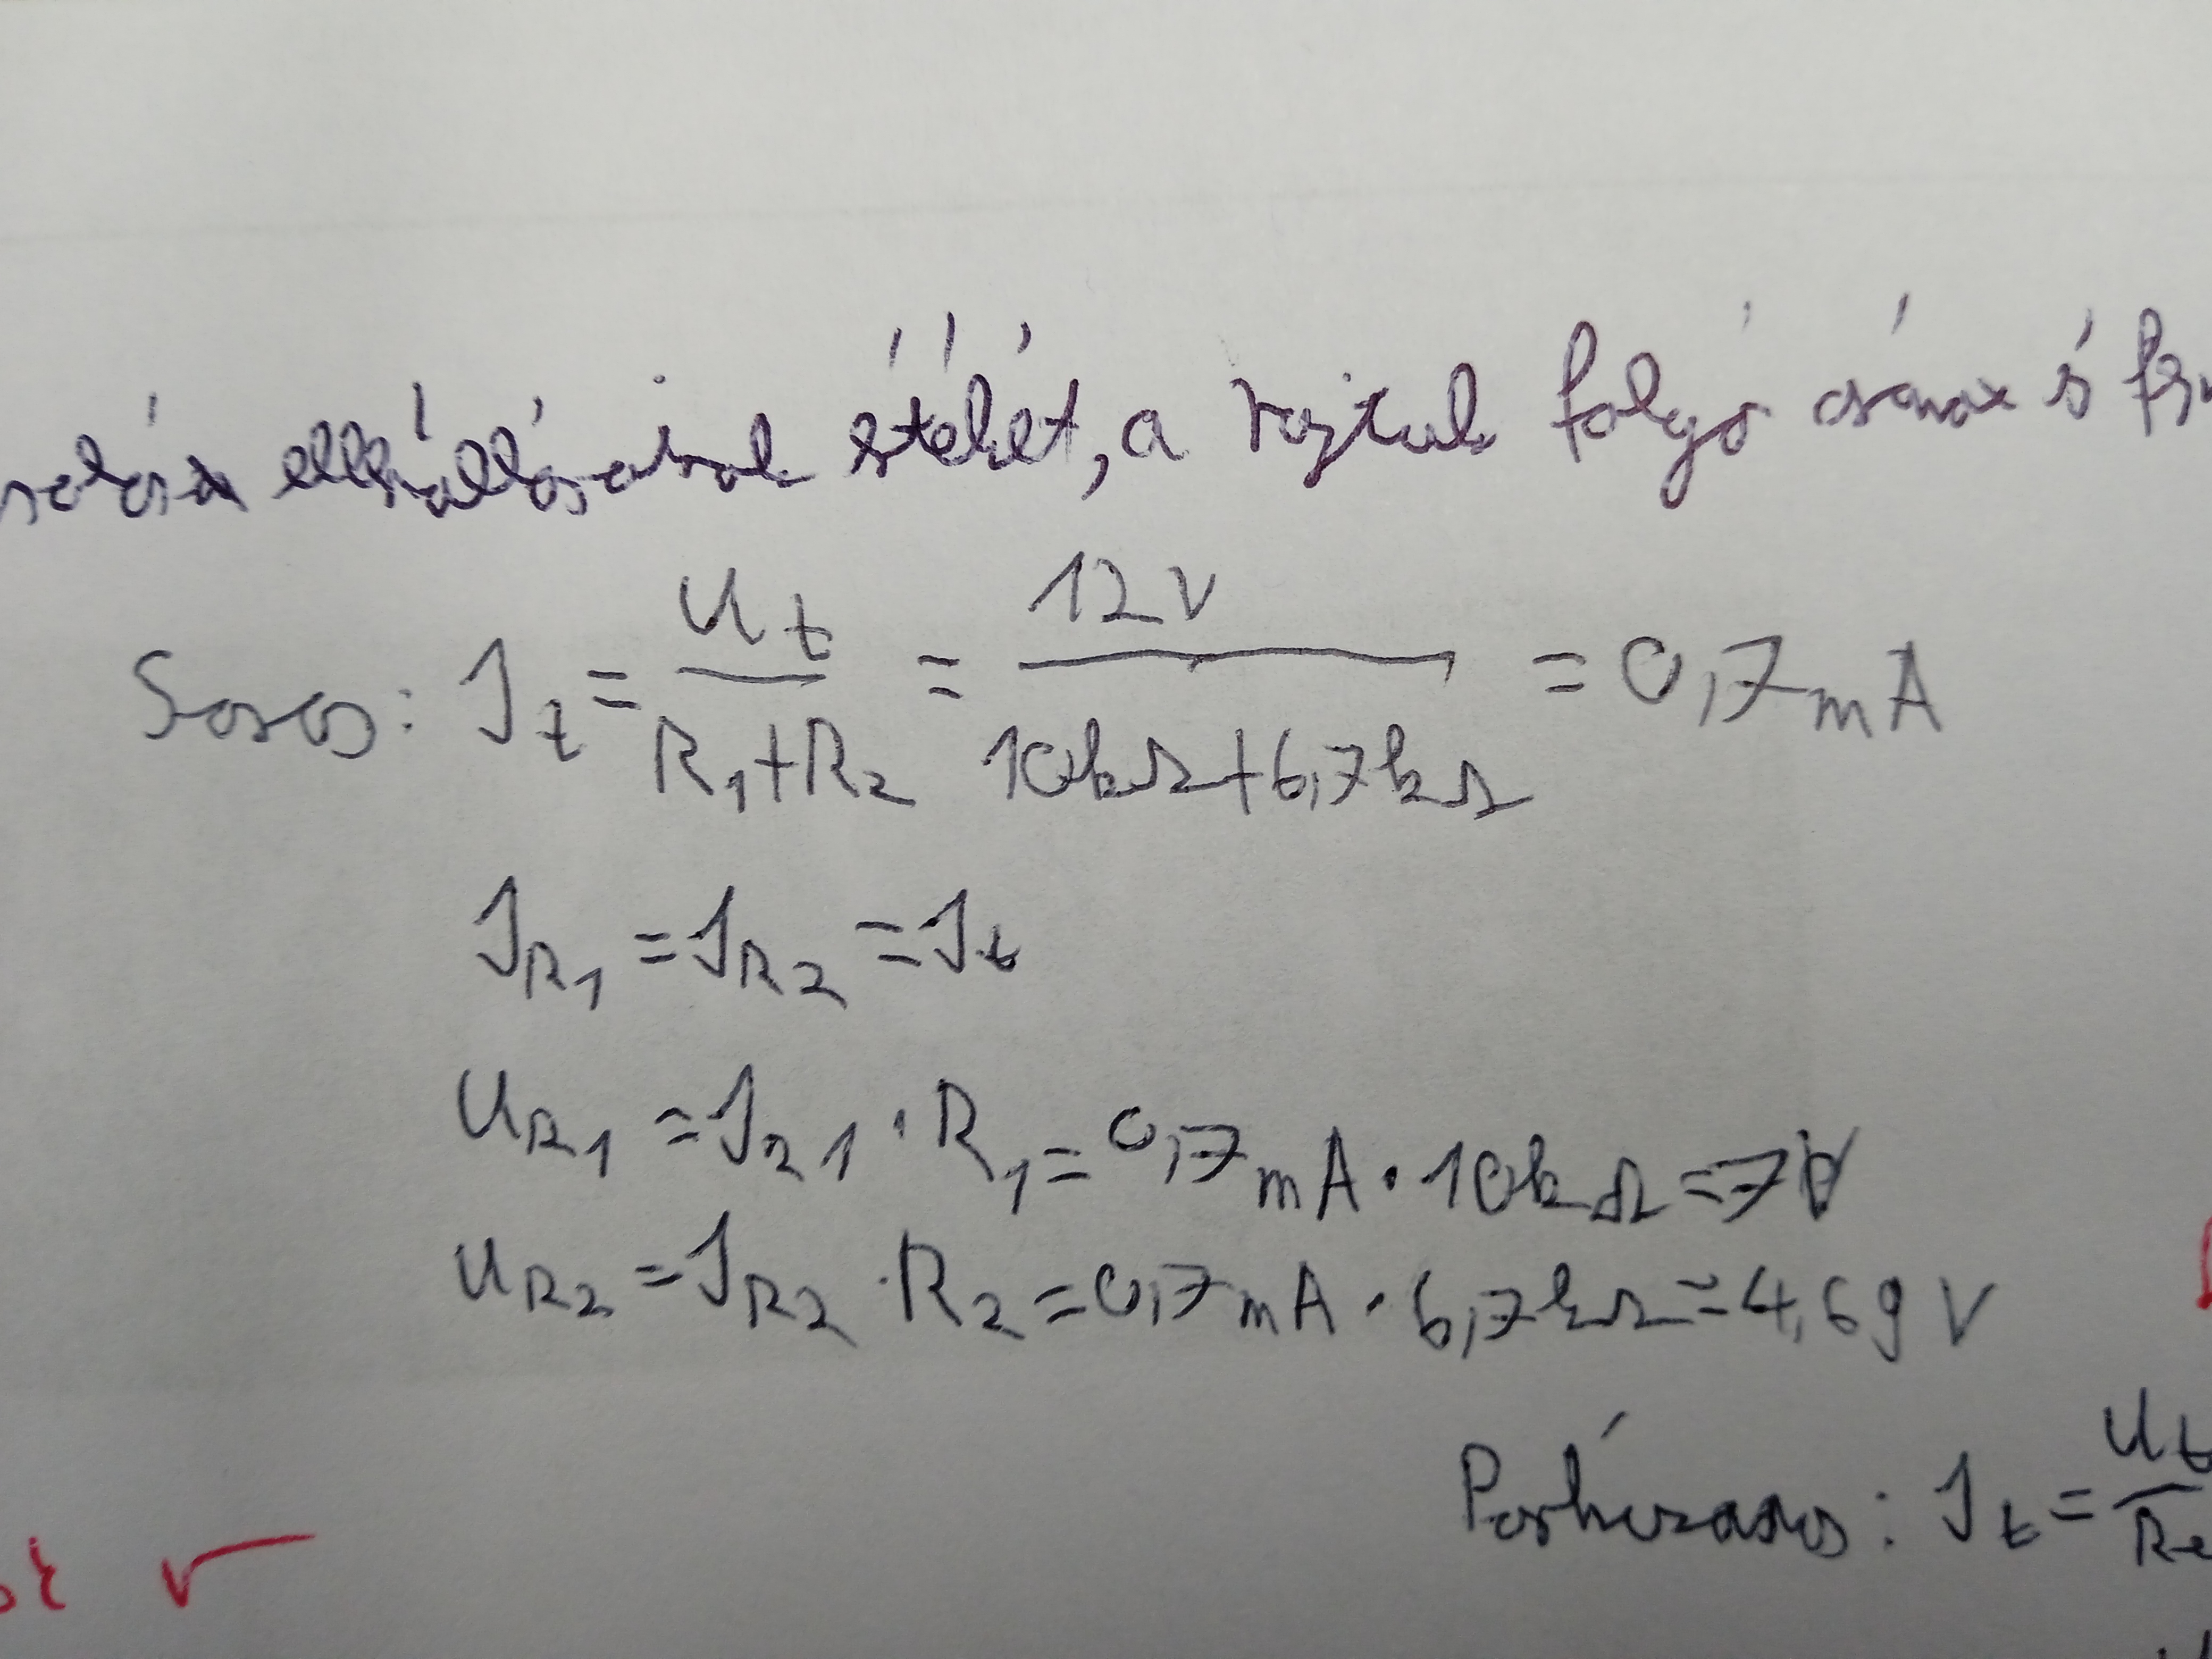 ellenállásainak értékét, a rajtuk folyó áramot és
Soros: I_t = U_t / (R_1 + R_2) = 12V / (10kΩ + 6,7kΩ) = 0,7mA
I_R1 = I_R2 = I_t
U_R1 = I_R1 · R_1 = 0,7mA · 10kΩ = 7V
U_R2 = I_R2 · R_2 = 0,7mA · 6,7kΩ = 4,69V
Párhuzamos: I_t = U_t / R_e